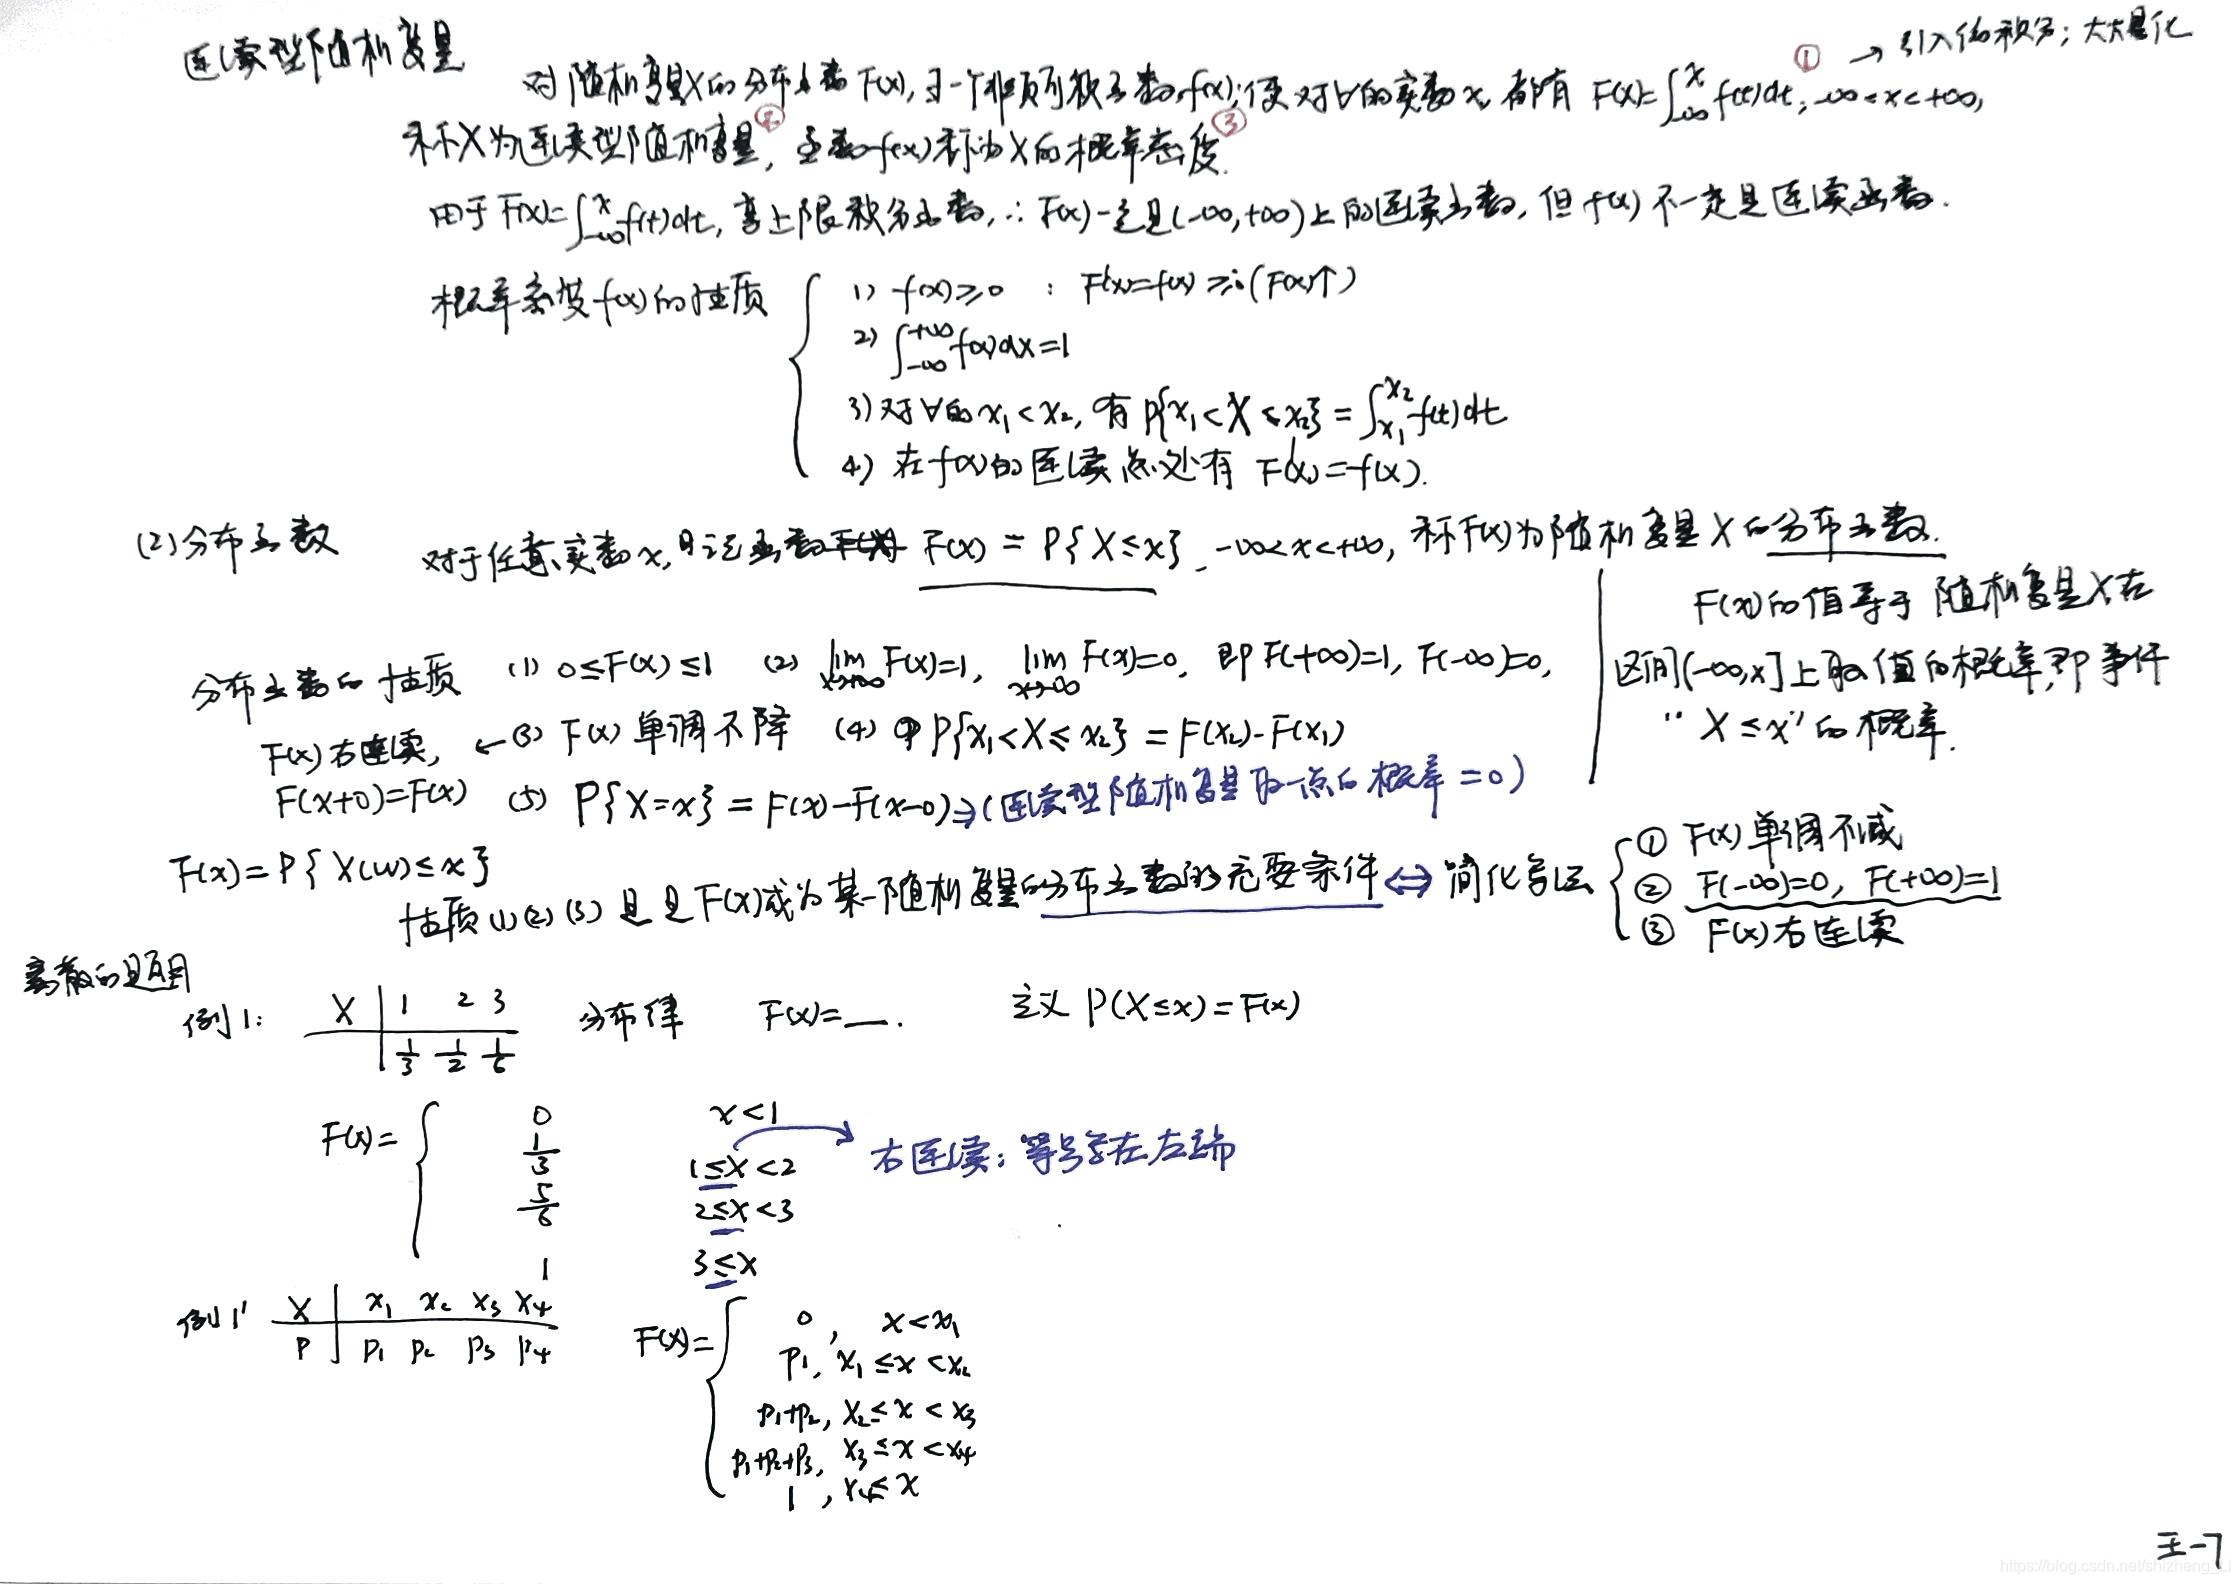 连续型随机变量
对随机变量X的分布函数F(x),∃一个非负可积函数f(x),使对∀的实数x,都有 F(x)=∫_{-∞}^{x} f(t)dt, -∞<x<+∞, ① → 引入微积分;大大量化
称X为连续型随机变量②, 函数f(x)称为X的概率密度③.
由于F(x)=∫_{-∞}^{x} f(t)dt, 变上限积分函数,∴F(x)一定是(-∞,+∞)上的连续函数,但f(x)不一定是连续函数.
概率密度f(x)的性质
1) f(x)≥0 : F'(x)=f(x)≥0 (F(x)↑)
2) ∫_{-∞}^{+∞} f(x)dx=1
3) 对∀的x₁<x₂, 有P{x₁<X≤x₂}=∫_{x₁}^{x₂} f(t)dt
4) 在f(x)的连续点处有 F'(x)=f(x).
(2)分布函数 对于任意实数x, 记函数 F(x)=P{X≤x}, -∞<x<+∞, 称F(x)为随机变量X的分布函数.
F(x)的值等于随机变量X在
区间(-∞,x]上取值的概率,即事件
“X≤x”的概率.
分布函数的性质 (1) 0≤F(x)≤1 (2) lim_{x→+∞} F(x)=1, lim_{x→-∞} F(x)=0, 即F(+∞)=1, F(-∞)=0,
F(x)右连续, ← (3) F(x)单调不降 (4) P{x₁<X≤x₂}=F(x₂)-F(x₁)
F(x+0)=F(x) (5) P{X=x}=F(x)-F(x-0) ⇒(连续型随机变量取一点的概率=0)
F(x)=P{X(w)≤x}
性质(1)(2)(3)是F(x)成为某一随机变量的分布函数的充要条件 ⇔ 简化写法
① F(x)单调不减
② F(-∞)=0, F(+∞)=1
③ F(x)右连续
离散的题目
例1: X 1 2 3 分布律 F(x)=__. 定义 P(X≤x)=F(x)
1/3 1/2 1/6
F(x)=
0 x<1
1/3 1≤x<2 右连续:等号写在左端
5/6 2≤x<3
1 3≤x
例1' X x₁ x₂ x₃ x₄
P p₁ p₂ p₃ p₄
F(x)=
0, x<x₁
p₁, x₁≤x<x₂
p₁+p₂, x₂≤x<x₃
p₁+p₂+p₃, x₃≤x<x₄
1, x₄≤x
https://blog.csdn.net/shizheng_Li